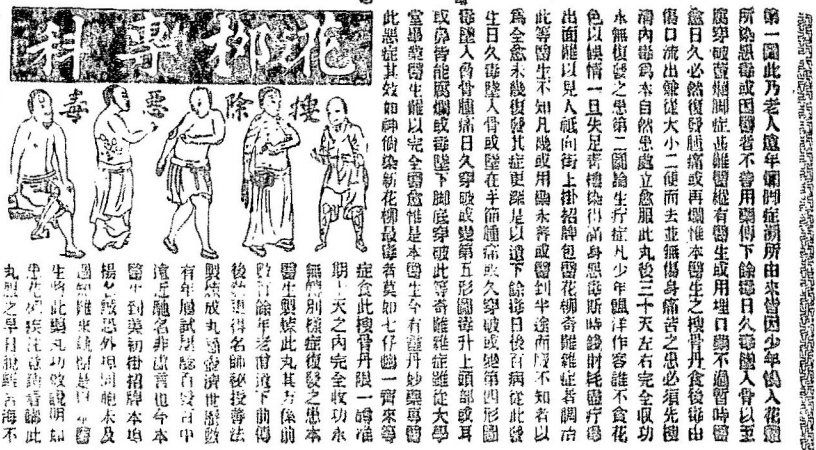 花柳專科
搜除惡毒
第一圖此乃老人遠年爛脚症溯所由來皆因少年悞入花叢
所染惡毒或因醫者不善用藥傅下餘毒日久毒墜入骨以至
腐穿破濃爛脚症甚難醫權有醫生或用埋口藥不過暫時醫
愈日久必然復發腫痛或再爛惟本醫生之搜骨丹食後毒由
傷口流出兼從大小二便而去並無傷身痛苦之患必須先搜
清內毒為本自然患處立愈服此丸後三十天左右完全收功
永無復發之患第二圖論生疔症凡少年飄洋作客誰不貪花
色以娛情一旦失足青樓染得滿身惡毒斯時錢財耗盡疔毒
出面難以見人祗向街上掛招牌包醫花柳奇難雜症者調治
此等醫生不知凡幾或用藥未善或醫到半途而廢不知者以
為全愈未幾復發其症更深是以遺下餘毒日後百病從此發
生日久毒墜入骨或墜在手節腫痛或久穿破或變第四形圖
毒墜入骨骨腫痛日久穿破或變第五形圖毒升上頭部或耳
或鼻皆能腐爛或毒墜下脚底穿破此等奇難雜症雖從大學
堂畢業醫生難以完全醫愈惟是本醫生今有靈丹妙藥專醫
此惡症其效如神倘染新花柳最毒者莫如七仔一齊來等
症食此搜骨丹限一准
期十天之內完全收功永
無別樣症復發之患本
醫生製煉此丸其方係前
百餘年老前遺下前傳
後教得名師秘授善法
製煉成丸靈驗濟世歷數
有年屢試屢驗百發百中
遠近馳名非虛言也今本
醫生到美初掛招牌本埠
恐外埠同胞未及
生將此藥丸功效說明如
丸服之早日脫離苦海不